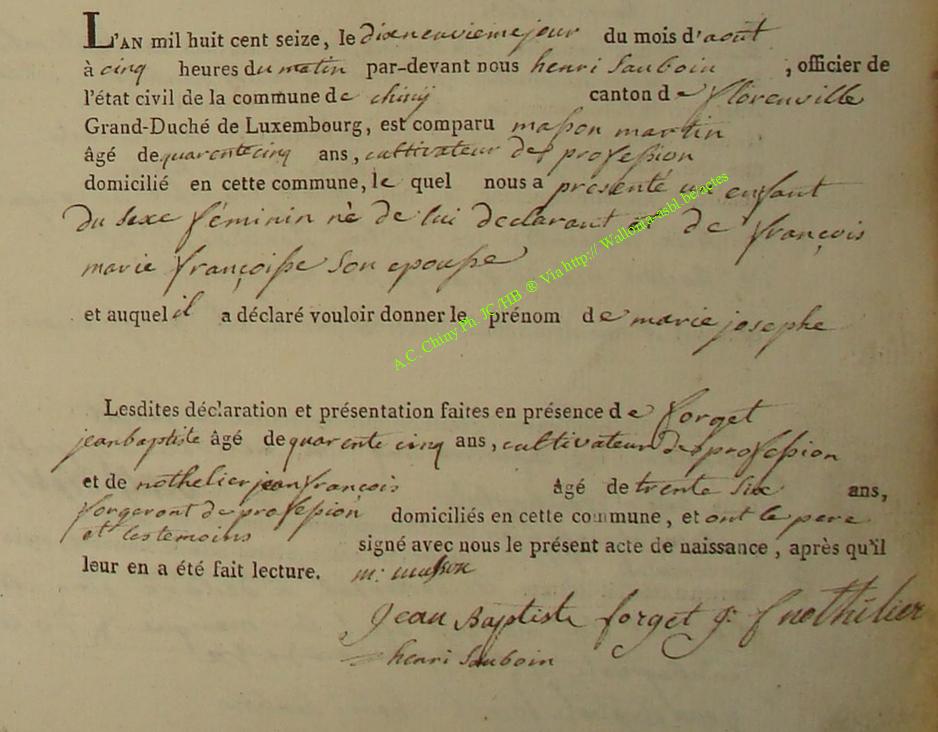 L'AN mil huit cent seize, le dixneuvieme jour du mois d'aout
à cinq heures du matin par-devant nous henri Sauboin , officier de
l'état civil de la commune de chiny canton de florenville
Grand-Duché de Luxembourg, est comparu masson martin
âgé de quarente cinq ans, cultivateur de profession
domicilié en cette commune, le quel nous a presenté un enfant
du sexe féminin nè de lui declarant et de françois
marie françoisse son epousse
et auquel il a déclaré vouloir donner le prénom de marie josephe
A.C. Chiny Ph. JC/HB ® Via http:// Wallonia-asbl.be/actes
Lesdites déclaration et présentation faites en présence de forget
jean baptiste âgé de quarente cinq ans, cultivateur de profession
et de nothelier jean françois âgé de trente six ans,
forgeront de profession domiciliés en cette commune, et ont le pere
et les temoins signé avec nous le présent acte de naissance, après qu'il
leur en a été fait lecture. m: masson
Jean Baptiste forget j: f nothilier
henri Sauboin